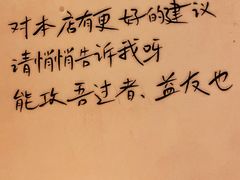 对本店有更好的建议
请悄悄告诉我呀
能攻吾过者、益友也